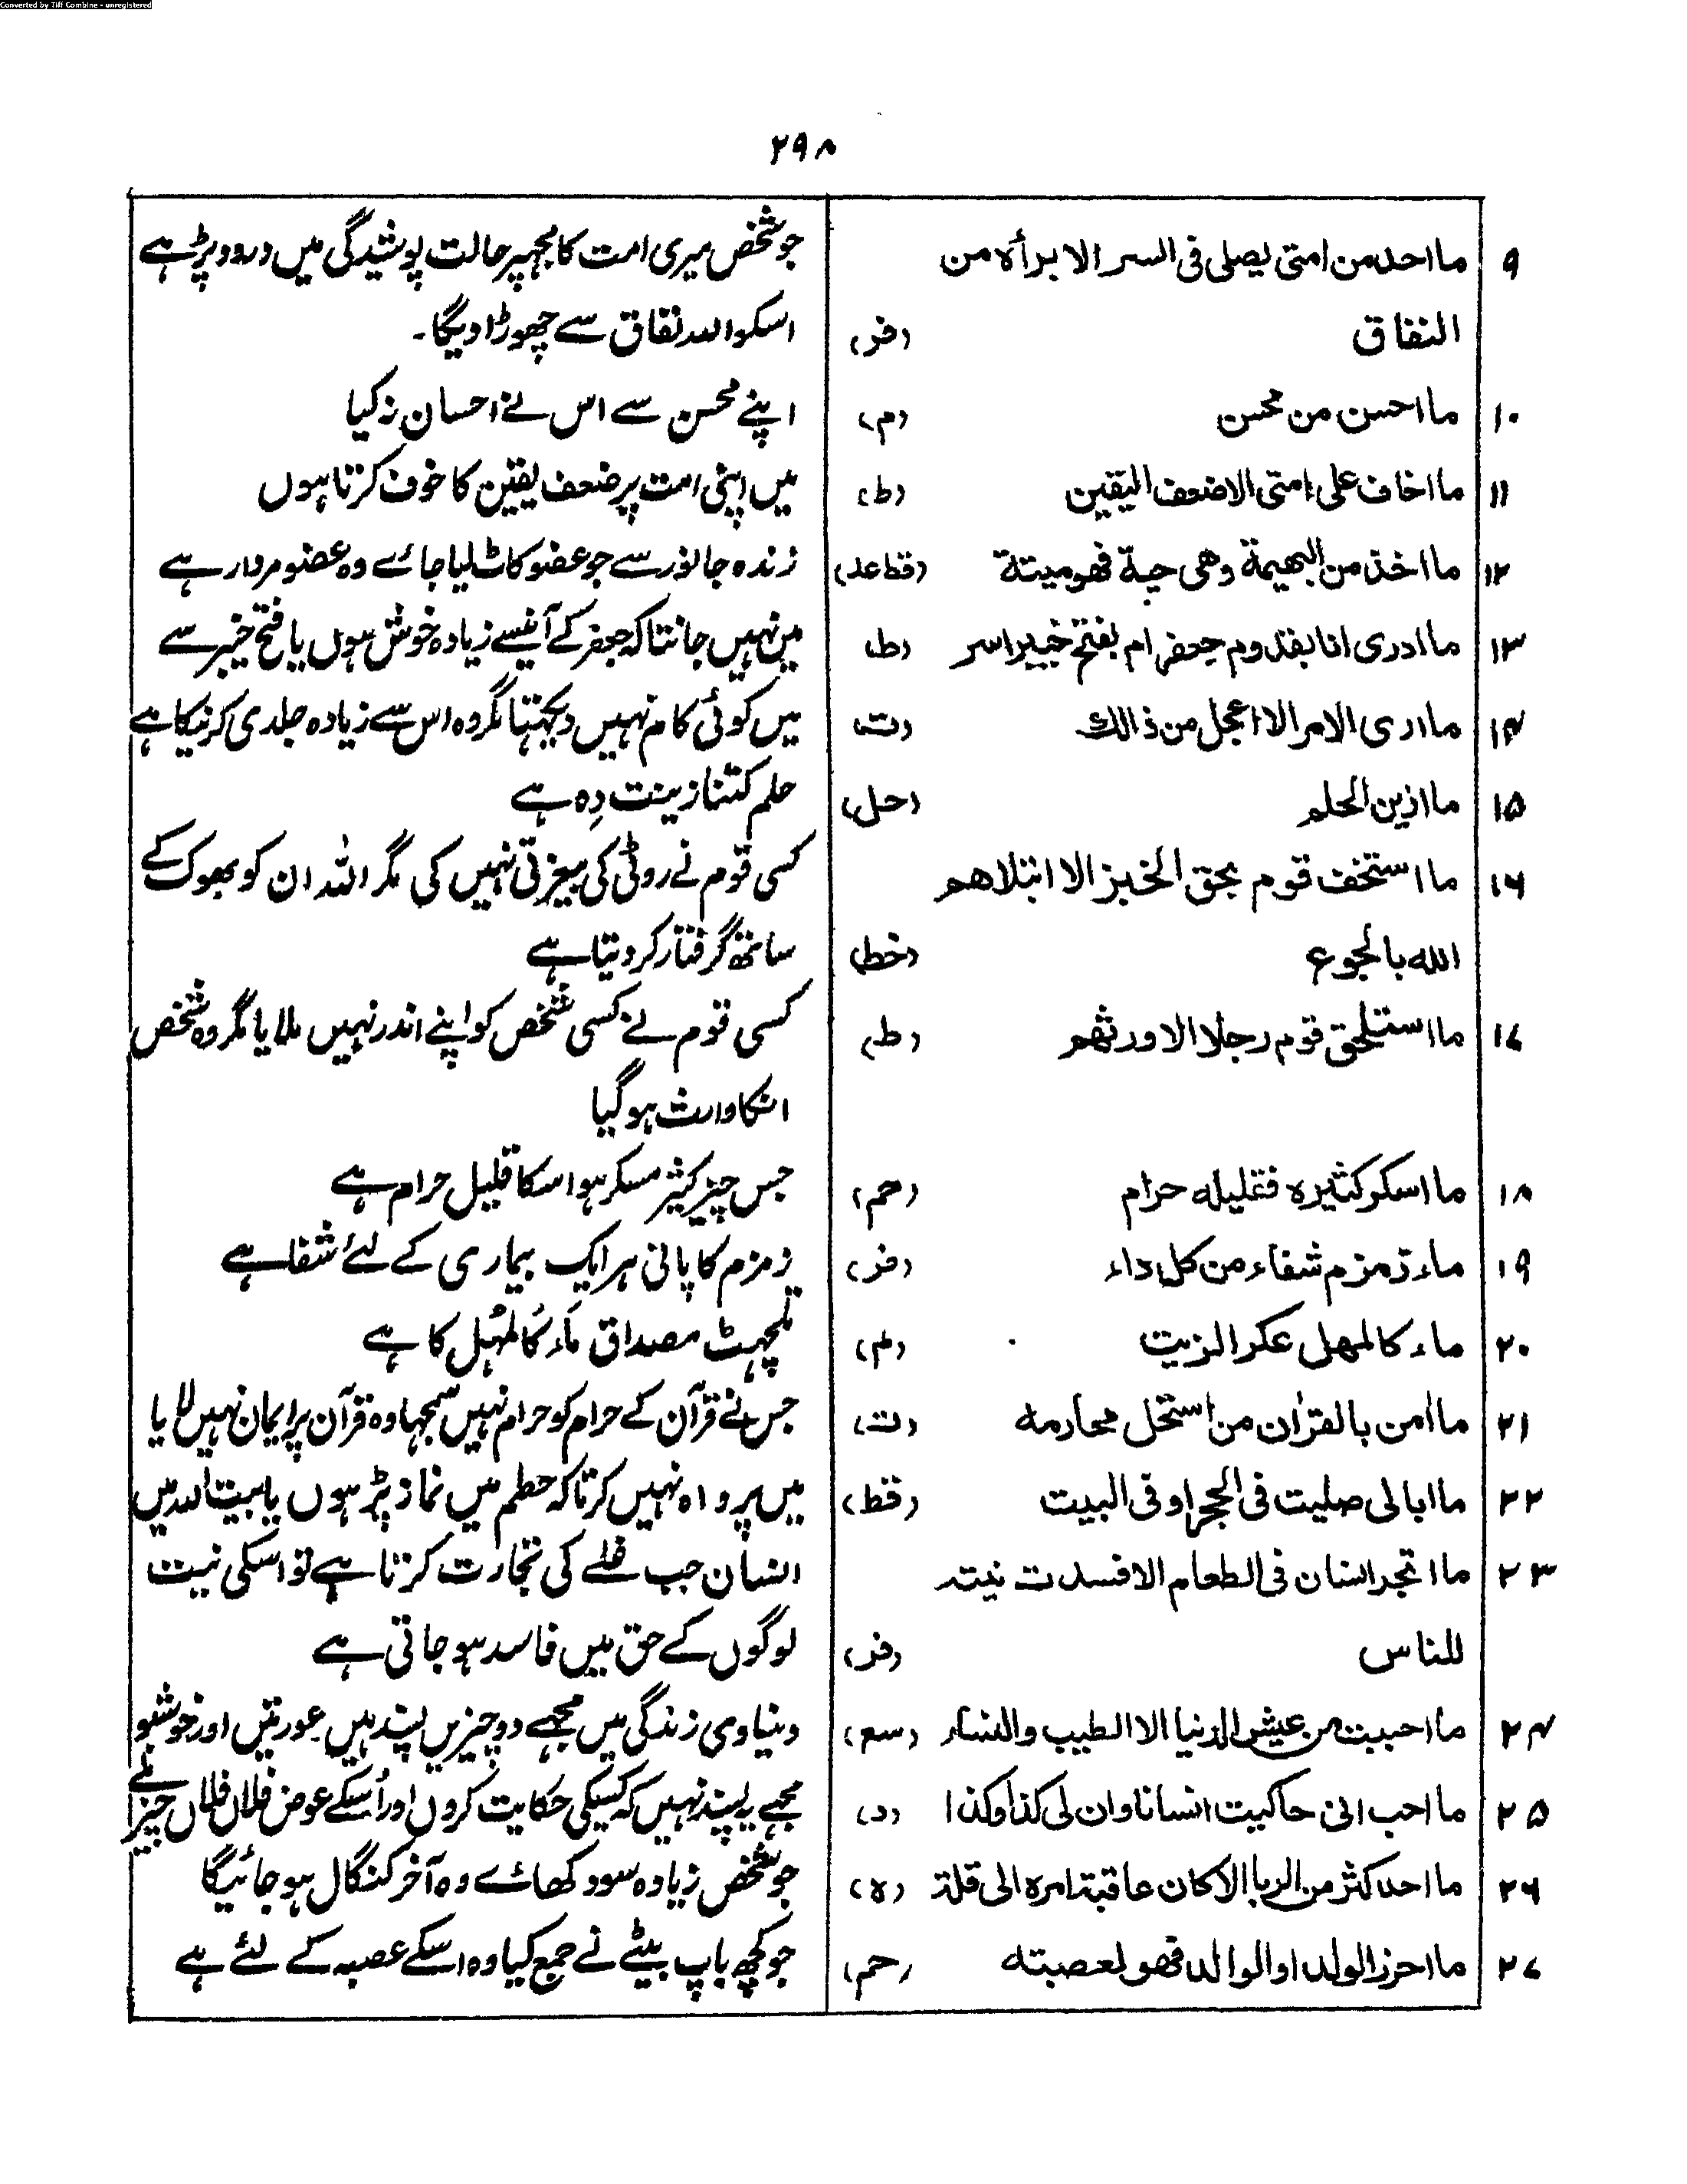 Converted by Tiff Combine - unregistered
۲۹۸
۹ ما احد من امتی یصلی فی السر الا برأہ من جو شخص میری امت کا مجہپر حالت پوشیدگی میں درود پڑہے
النفاق (فر) اسکو اللہ نفاق سے چھوڑا دیگا۔
۱۰ ما احسن من محسن (م) اپنے محسن سے اس نے احسان نہ کیا
۱۱ ما اخاف علی امتی الا ضعف الیقین (ط) میں اپنی امت پر ضعف یقین کا خوف کرتا ہوں
۱۲ ما اخذ من البهیمة وهی حیة فهو میتة (قط عد) زندہ جانور سے جو عضو کاٹ لیا جائے وہ عضو مردار ہے
۱۳ ما ادری انا بقدوم جعفر ام بفتح خیبر اسر (ط) میں نہیں جانتا کہ جعفر کے آنیسے زیادہ خوش ہوں یا فتح خیبر سے
۱۴ ما اری الامر الا اعجل من ذالك (ت) میں کوئی کام نہیں دیکہتا مگر وہ اس سے زیادہ جلدی کرنیکا ہے
۱۵ ما ازین الحلم (حل) حلم کتنا زینت دِہ ہے
۱۶ ما استخف قوم بحق الخبز الا ابتلاهم کسی قوم نے روٹی کی بیعزتی نہیں کی مگر اللہ ان کو بھوک کے
الله بالجوع (خط) ساتھ گرفتار کر دیتا ہے
۱۷ ما استلحق قوم رجلا الا ورثهم (ط) کسی قوم نے کسی شخص کو اپنے اندر نہیں ملایا مگر وہ شخص
انکا وارث ہو گیا
۱۸ ما اسکر کثیره فقلیله حرام (حم) جس چیز کثیر مسکر ہو اسکا قلیل حرام ہے
۱۹ ماء زمزم شفاء من کل داء (فر) زمزم کا پانی ہر ایک بیماری کے لئے شفا ہے
۲۰ ماء کالمهل عکر الزیت (م) تلچہٹ مصداق مَاء کَالمُہل کا ہے
۲۱ ما امن بالقرٰان من استحل محارمه (ت) جس نے قرآن کے حرام کو حرام نہیں سمجہا وہ قرآن پر ایمان نہیں لایا
۲۲ ما ابالی صلیت فی الحجر او فی البیت (قط) میں پرواہ نہیں کرتا کہ حطم میں نماز پڑہوں یا بیت اللہ میں
۲۳ ما اتجر انسان فی الطعام الا فسدت نیته انسان جب غلے کی تجارت کرتا ہے تو اسکی نیت
للناس (فر) لوگوں کے حق میں فاسد ہو جاتی ہے
۲۴ ما احببت من عیش الدنیا الا الطیب والنساء (سع) دنیاوی زندگی میں مجہے دو چیزیں پسند ہیں عورتیں اور خوشبو
۲۵ ما احب انی حاکیت انسانا وان لی کذا وکذا (د) مجہے یہ پسند نہیں کہ کسیکی حکایت کروں اور اُسکے عوض فلاں فلاں چیز ملے
۲۶ ما احد کثر من الربا الا کان عاقبة امره الی قلة (ہ) جو شخص زیادہ سود کھائے وہ آخر کنگال ہو جائیگا
۲۷ ما احرز الولد او الوالد فهو لعصبته (حم) جو کچھ باپ بیٹے نے جمع کیا وہ اسکے عصبہ کے لئے ہے